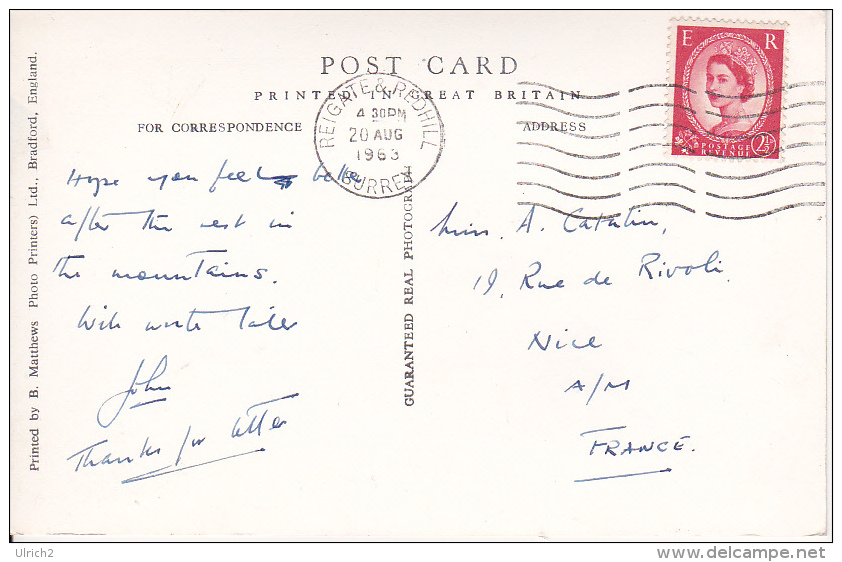 POST CARD
PRINTED IN GREAT BRITAIN
FOR CORRESPONDENCE
ADDRESS
REIGATE & REDHILL
4 30PM
20 AUG
1963
SURREY
E R
POSTAGE
REVENUE
2½
Hope you feel better
after the rest in
the mountains.
Will write later
John
Thanks for letter
Miss. A. Catalin,
19, Rue de Rivoli.
Nice
A/M
FRANCE.
GUARANTEED REAL PHOTOGRAPH
Printed by B. Matthews (Photo Printers) Ltd., Bradford, England.
Ulrich2
www.delcampe.net